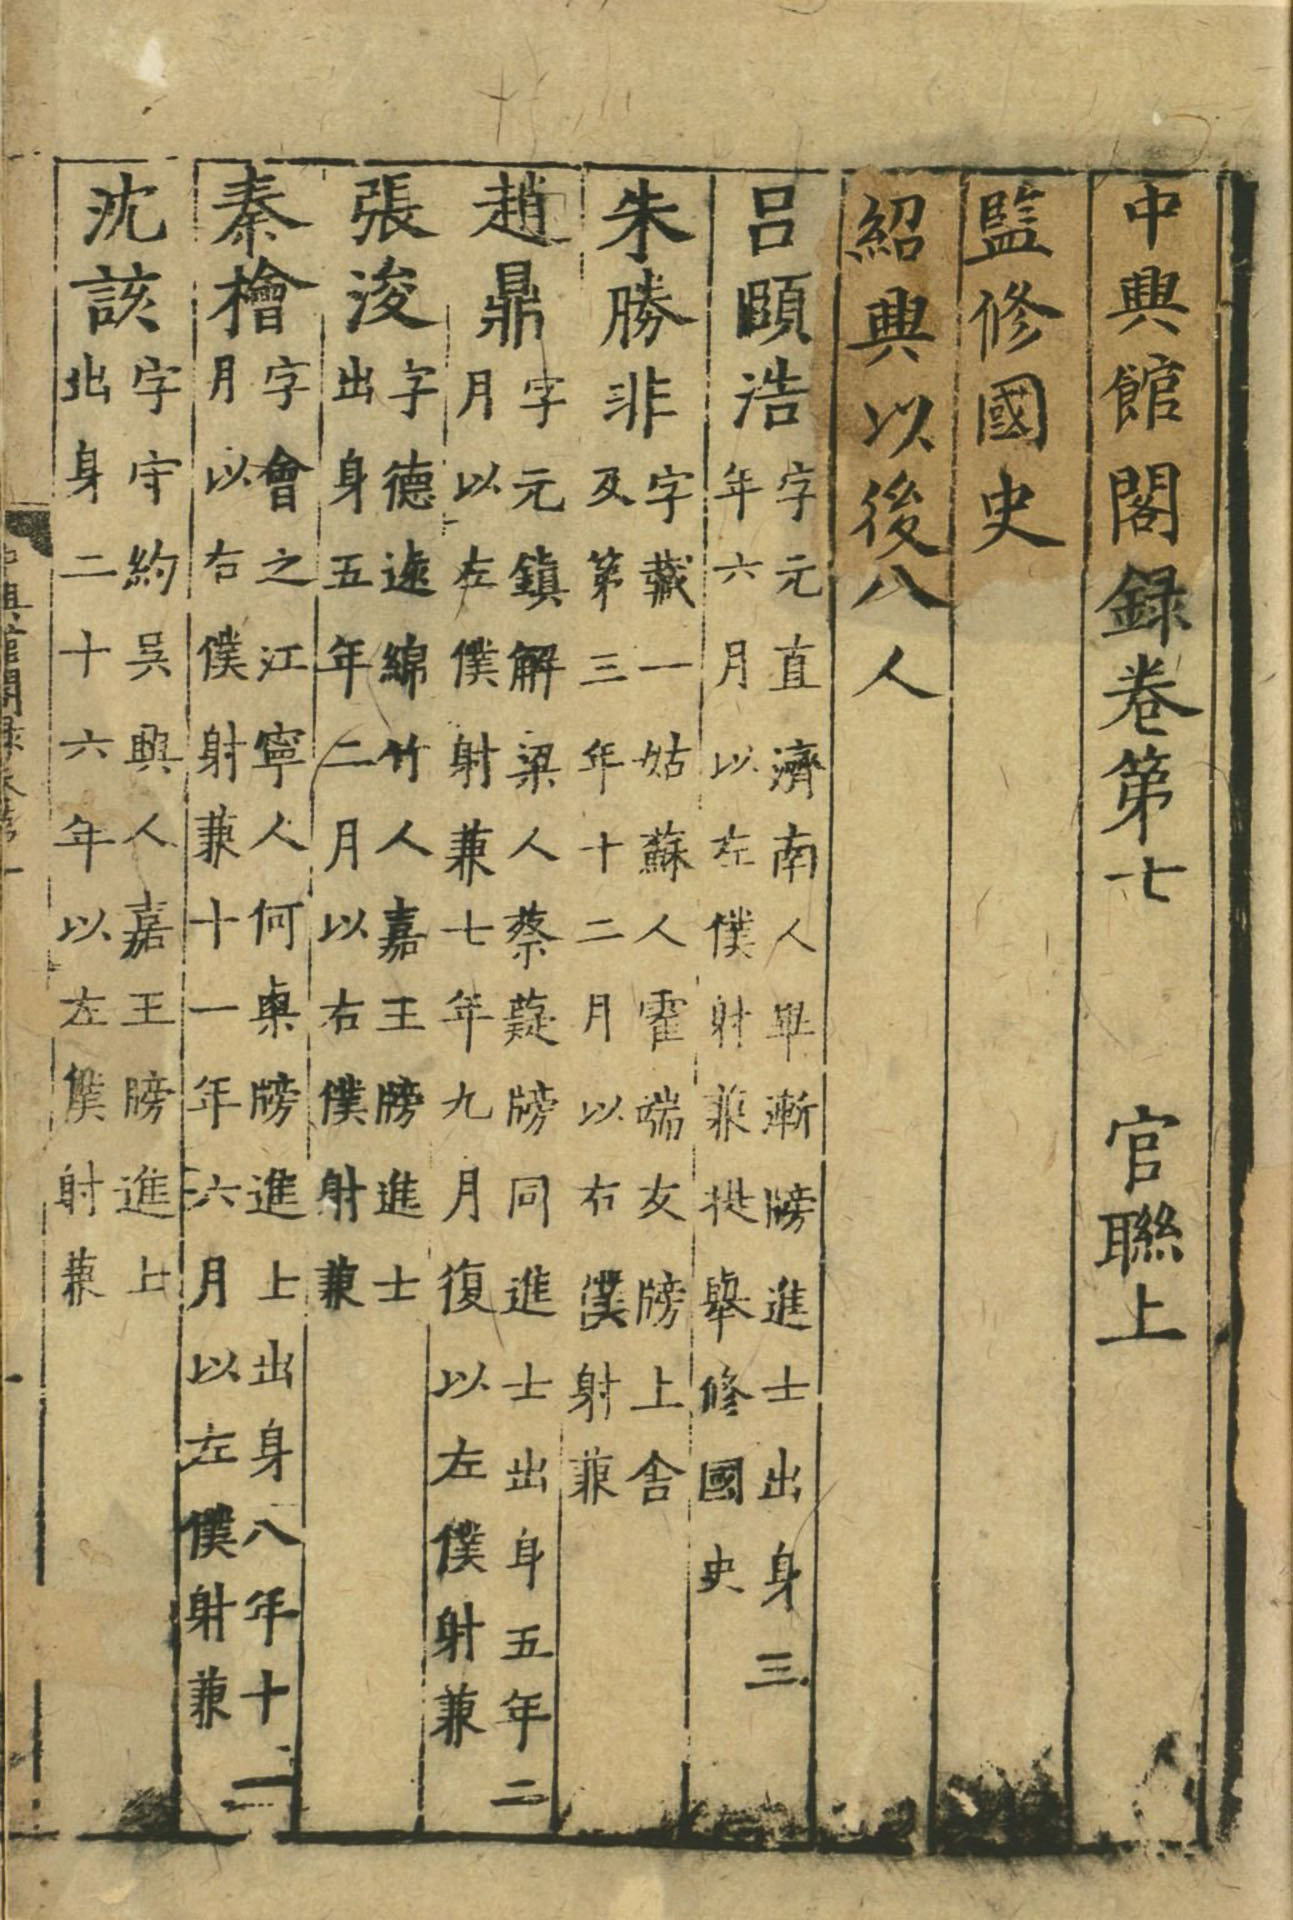 中興館閣録卷第七　官聯上
監修國史
紹興以後八人
呂頤浩字元直濟南人畢漸牓進士出身三
年六月以左僕射兼提舉修國史
朱勝非字藏一姑蘇人霍端友牓上舍
及第三年十二月以右僕射兼
趙鼎字元鎮解梁人蔡薿牓同進士出身五年二
月以左僕射兼七年九月復以左僕射兼
張浚字德遠綿竹人嘉王牓進士
出身五年二月以右僕射兼
秦檜字會之江寧人何㮚牓進士出身八年十二
月以右僕射兼十一年六月以左僕射兼
沈該字守約吳興人嘉王牓進士
出身二十六年以左僕射兼
中興館閣録卷第